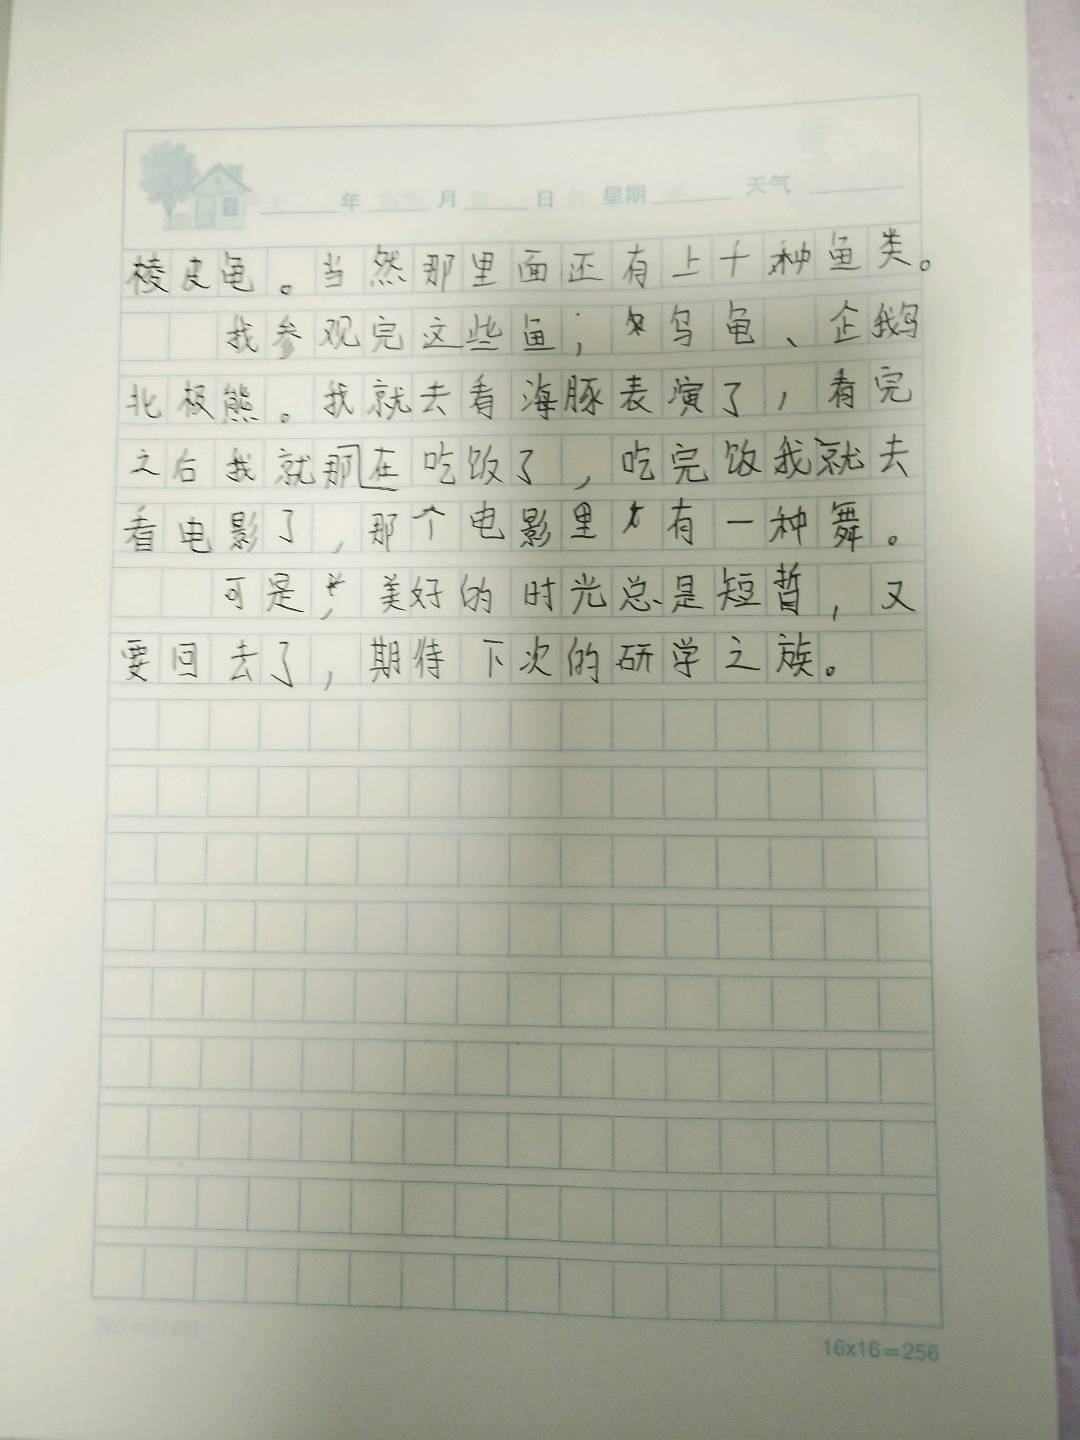 年 月 日 星期 天气
棱皮龟。当然那里面还有上千种鱼类。
我参观完这些鱼；乌龟、企鹅
北极熊。我就去看海豚表演了，看完
之后我就那在吃饭了，吃完饭我就去
看电影了，那个电影里有一种舞。
可是，美好的时光总是短暂，又
要回去了，期待下次的研学之族。
16x16=256